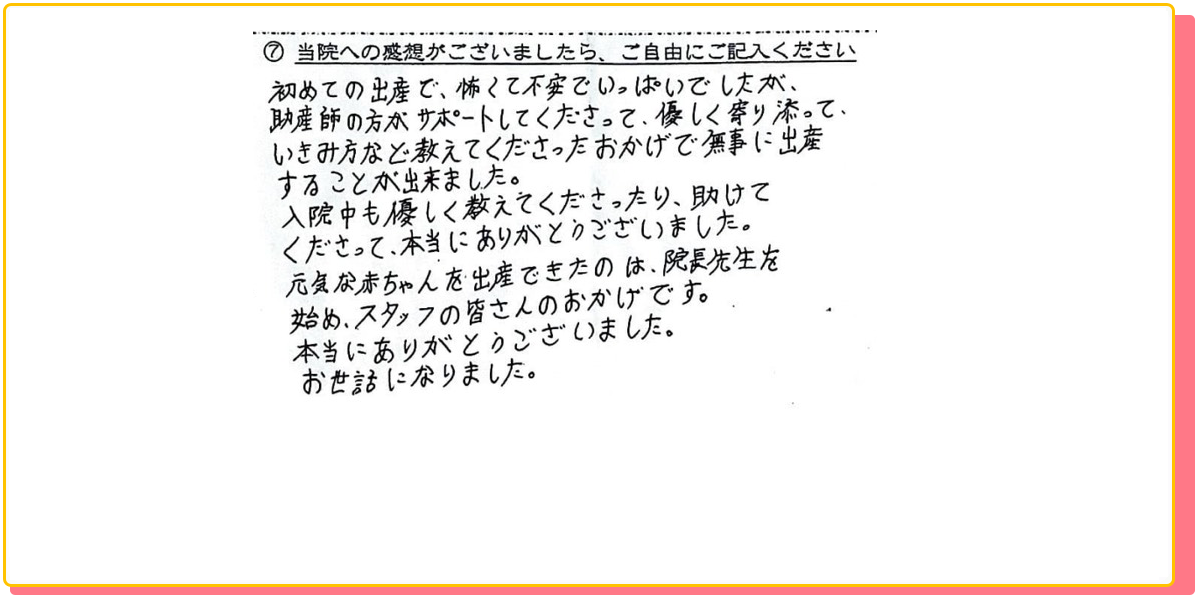 ⑦ 当院への感想がございましたら、ご自由にご記入ください
初めての出産で、怖くて不安でいっぱいでしたが、
助産師の方がサポートしてくださって、優しく寄り添って、
いきみ方など教えてくださったおかげで無事に出産
することが出来ました。
入院中も優しく教えてくださったり、助けて
くださって、本当にありがとうございました。
元気な赤ちゃんを出産できたのは、院長先生を
始め、スタッフの皆さんのおかげです。
本当にありがとうございました。
お世話になりました。